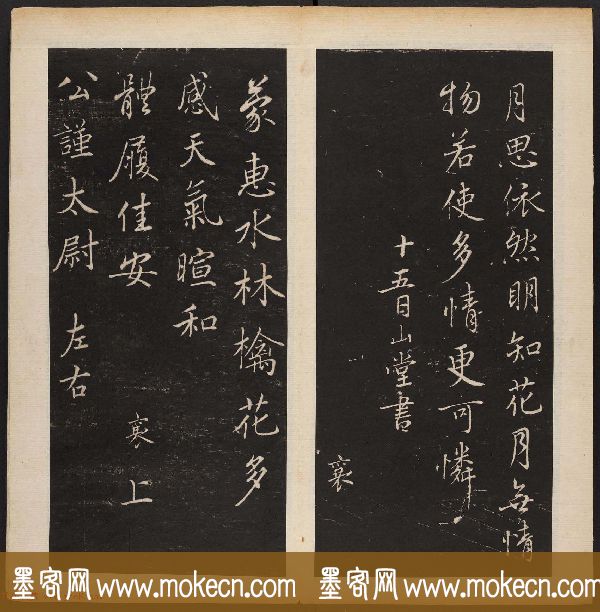 月思依然明知花月無情
物若使多情更可憐
十五日山堂書
襄
蒙惠水林檎花多
感天氣暄和
體履佳安
襄上
公謹太尉 左右
墨客网 www.mokecn.com 墨客网 www.mokecn.com